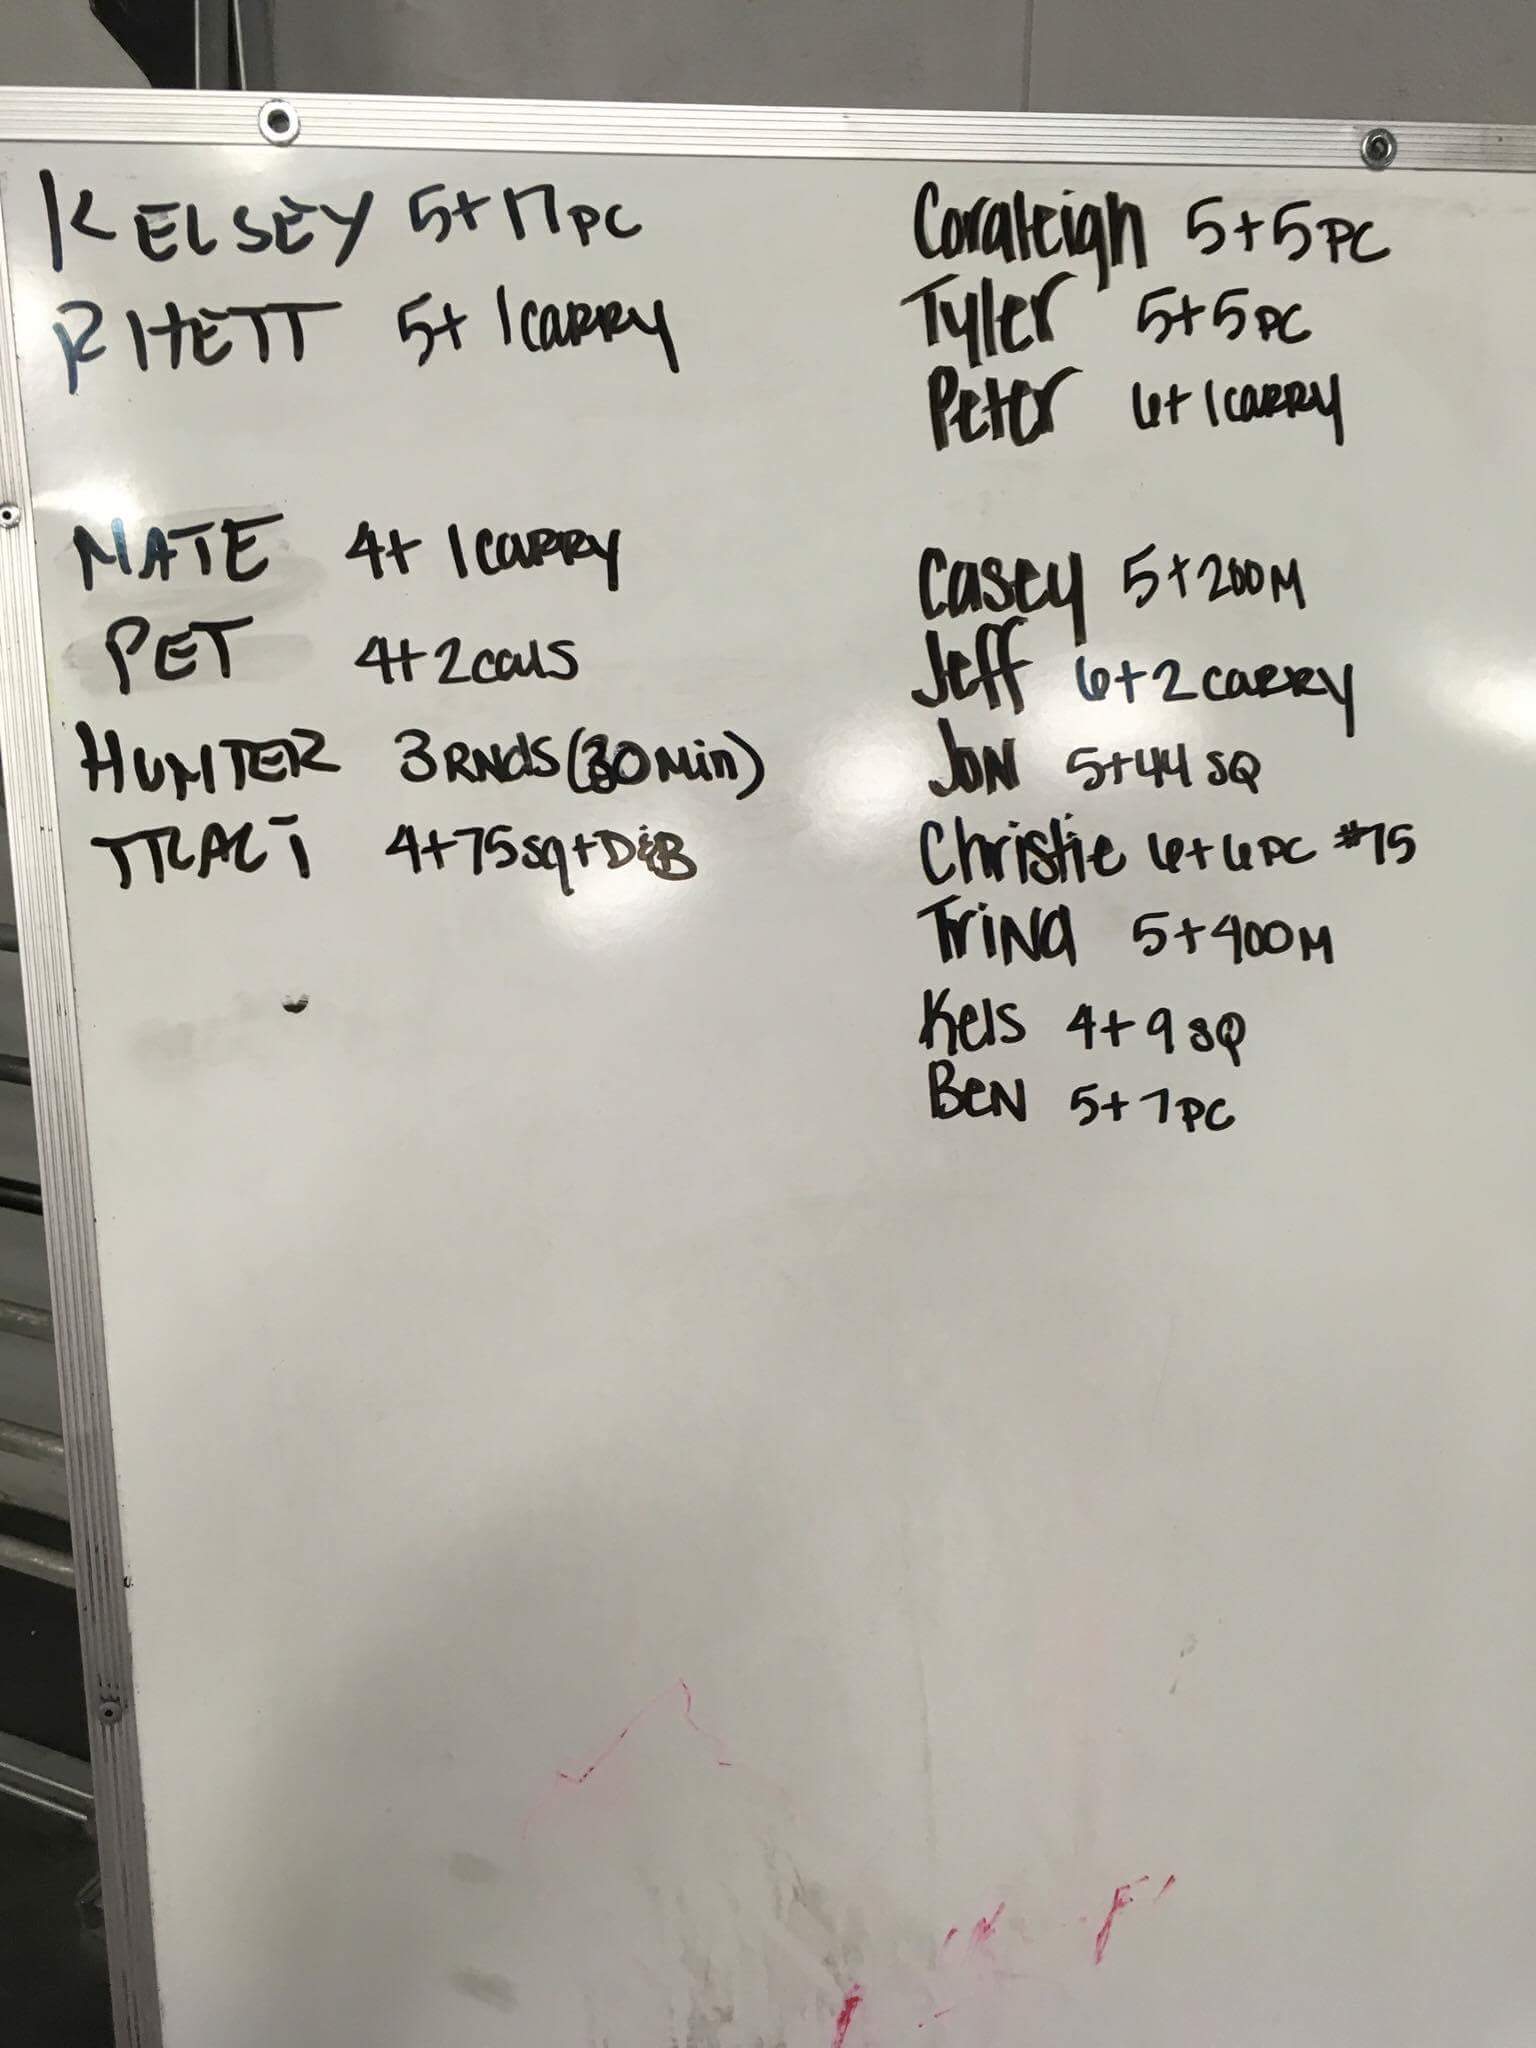 KELSEY 5+17PC
RHETT 5+1CARRY
NATE 4+1CARRY
PET 4+2cals
HUNTER 3RNdS(30Min)
TRACI 4+75sq+D&B
Coraleigh 5+5PC
Tyler 5+5PC
Peter 6+1CARRY
Casey 5+200M
Jeff 6+2CARRY
JON 5+44SQ
Christie 6+6PC #75
TriNa 5+400M
Kels 4+9SQ
BeN 5+7PC